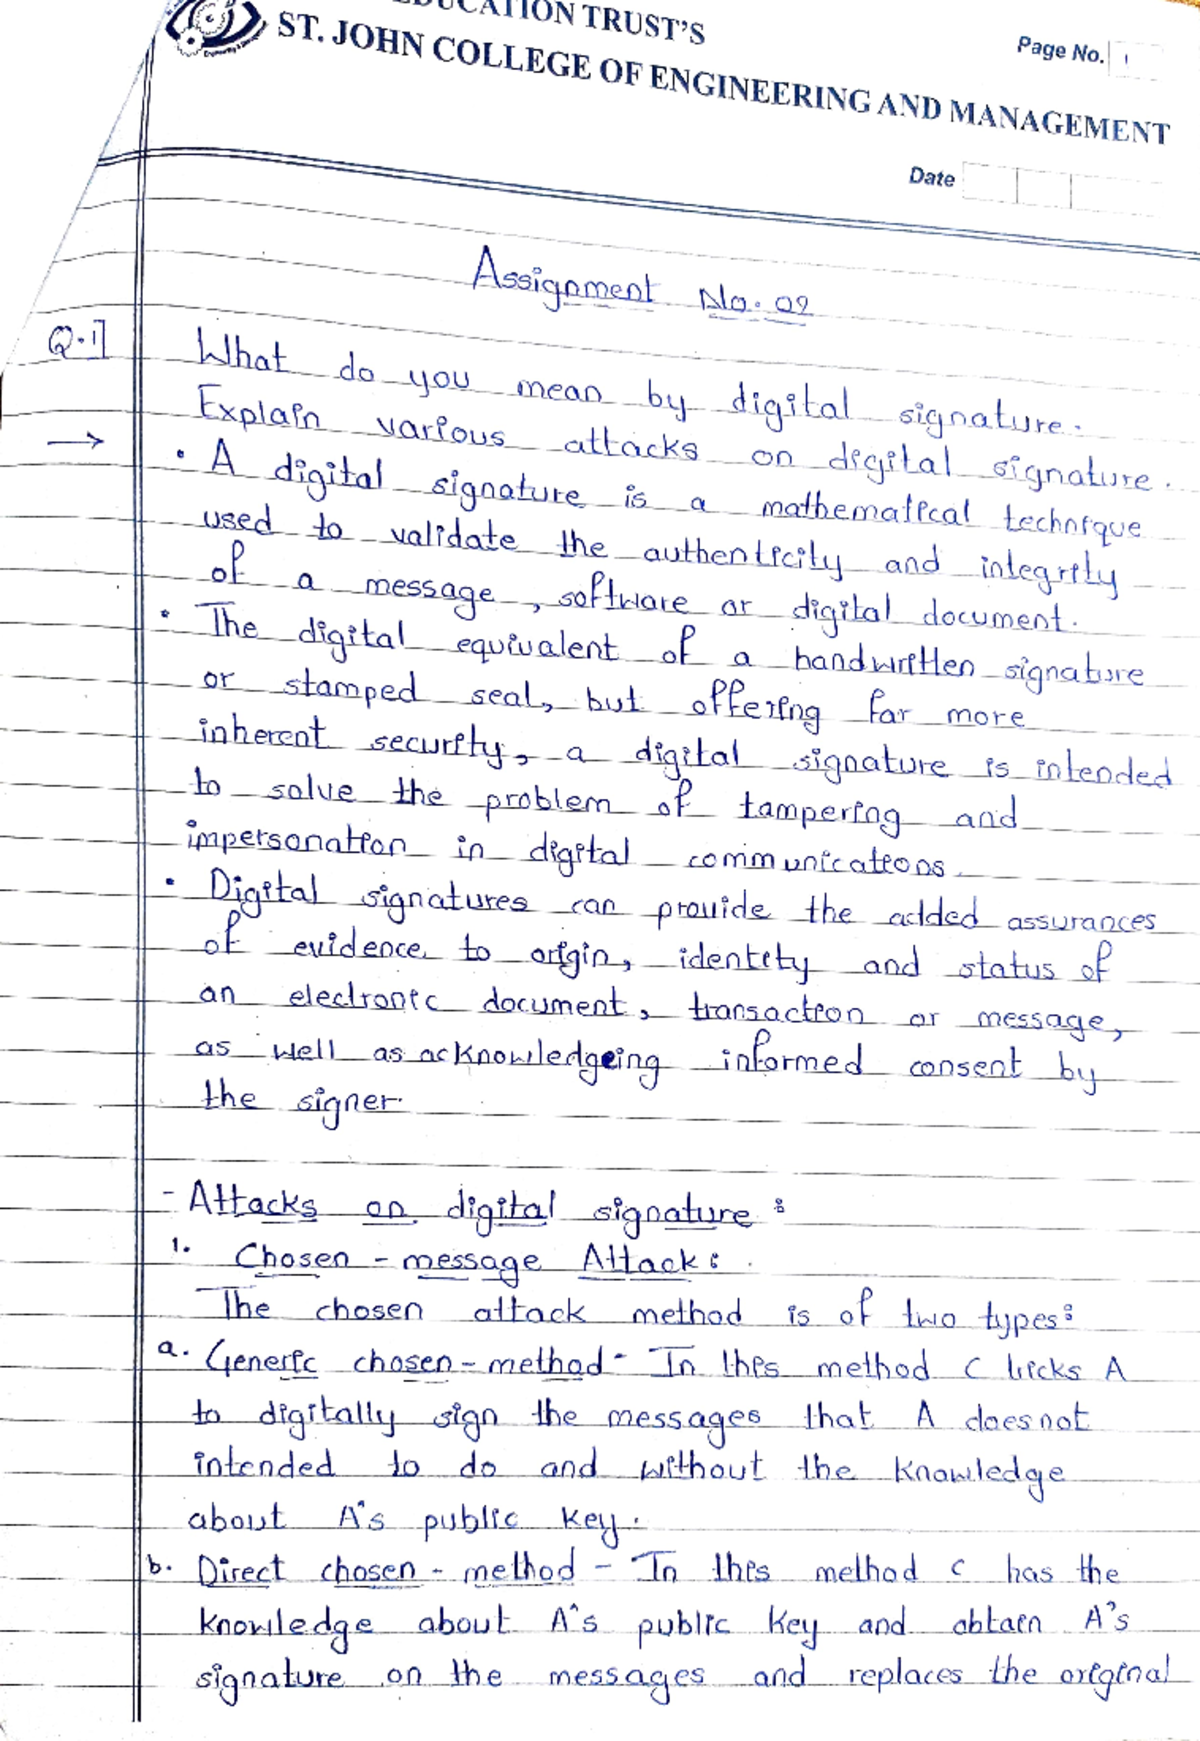 EDUCATION TRUST'S
ST. JOHN COLLEGE OF ENGINEERING AND MANAGEMENT
Page No. 1
Date
Assignment No. 02
Q.1]
What do you mean by digital signature.
Explain various attacks on digital signature.
→ • A digital signature is a mathematical technique
used to validate the authenticity and integrity
of a message, software or digital document.
• The digital equivalent of a handwritten signature
or stamped seal, but offering far more
inherent security, a digital signature is intended
to solve the problem of tampering and
impersonation in digital communications.
• Digital signatures can provide the added assurances
of evidence to origin, identity and status of
an electronic document, transaction or message,
as well as acknowledgeing informed consent by
the signer.
- Attacks on digital signature :
1. Chosen - message Attack :
The chosen attack method is of two types:
a. Generic chosen - method - In this method C tricks A
to digitally sign the messages that A does not
intended to do and without the knowledge
about A's public key.
b. Direct chosen - method - In this method C has the
knowledge about A's public key and obtain A's
signature on the messages and replaces the original